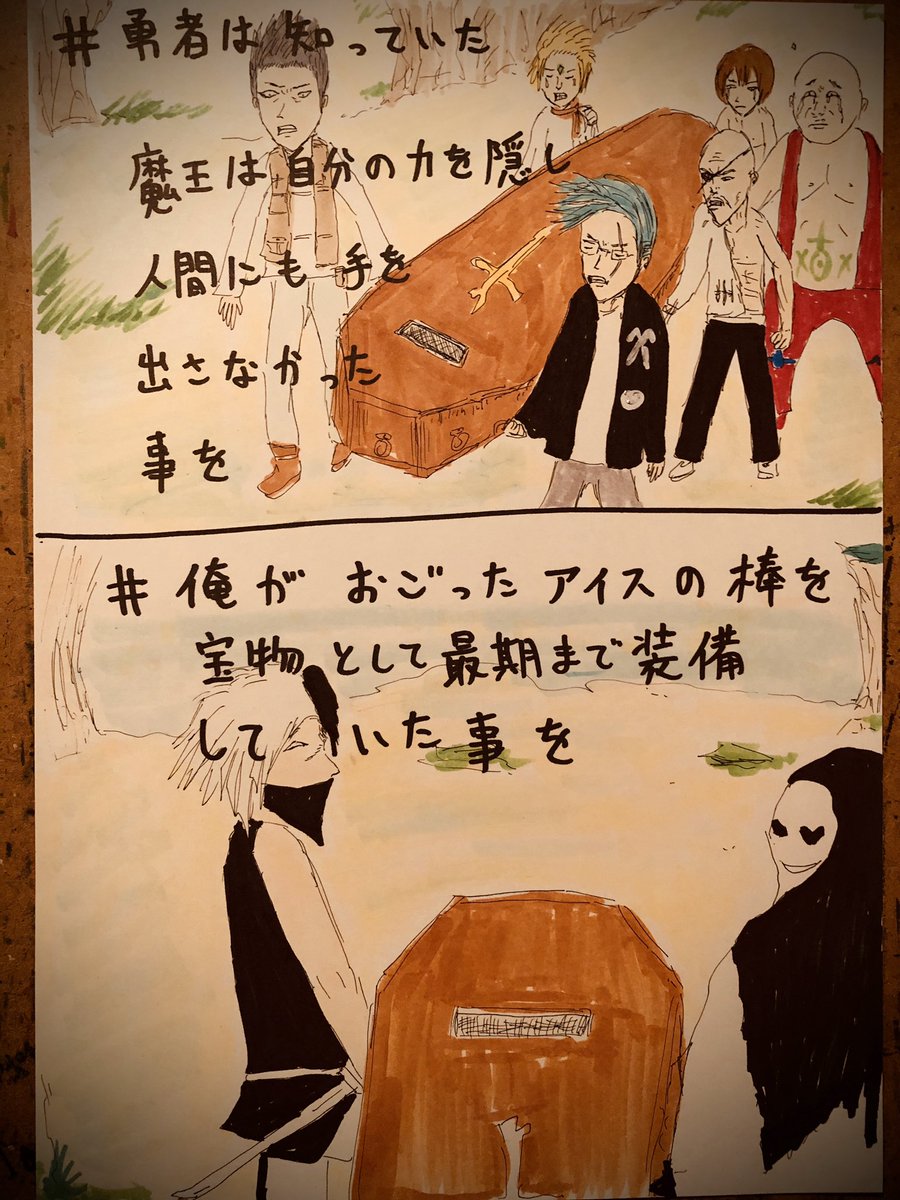 #勇者は知っていた
魔王は自分の力を隠し
人間にも手を
出さなかった
事を
#俺がおごったアイスの棒を
宝物として最期まで装備
していた事を